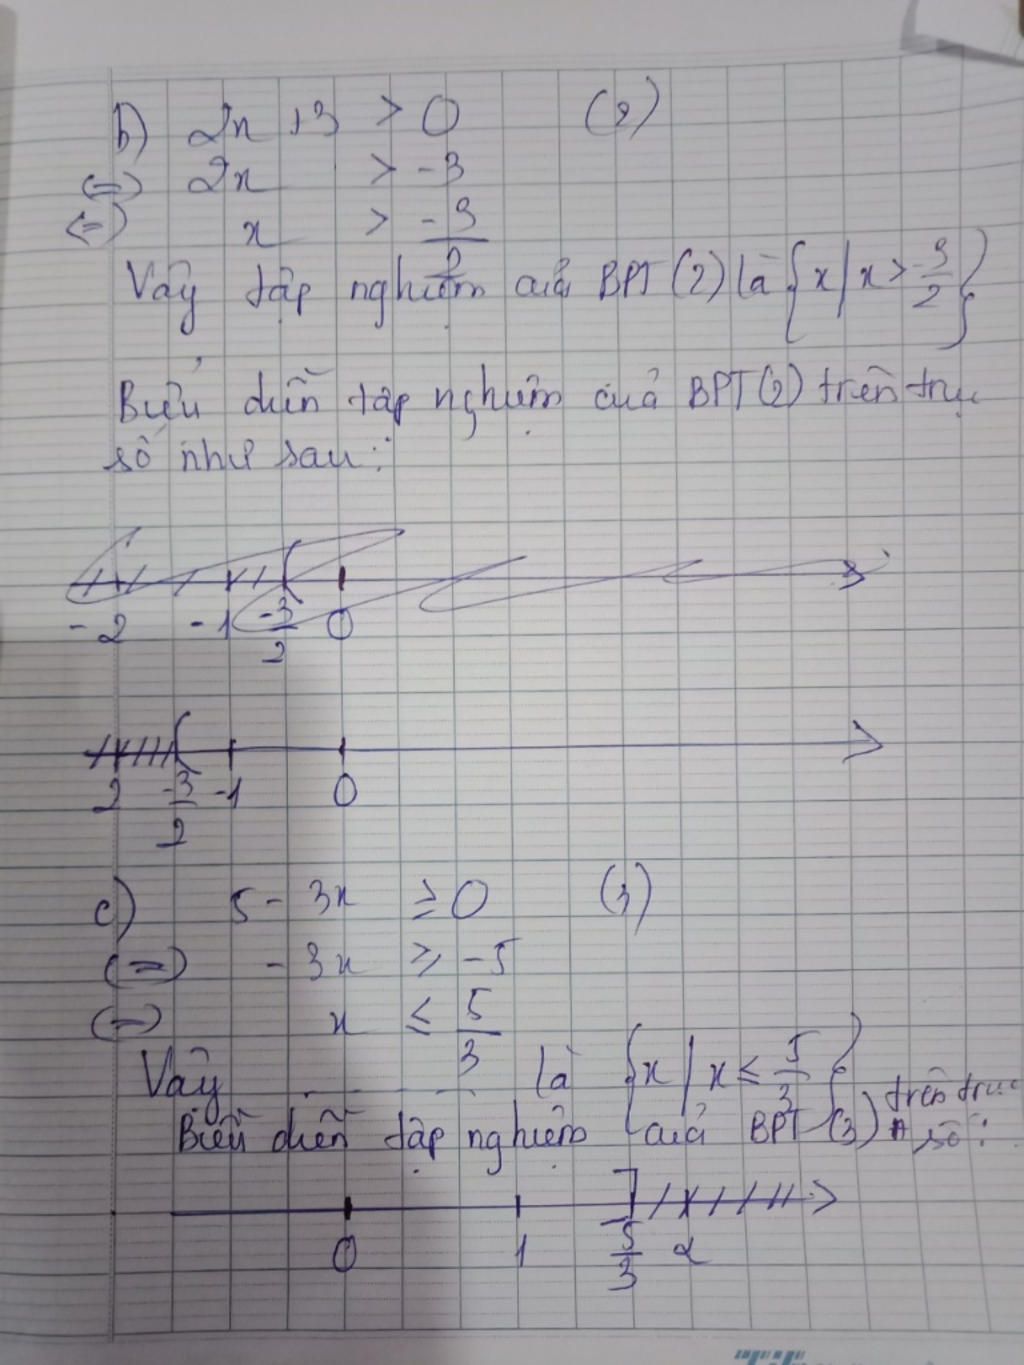 b) 2x + 3 > 0 (2)
(=) 2x > -3
(=) x > -3/2
Vậy tập nghiệm của BPT (2) là {x | x > -3/2}
Biểu diễn tập nghiệm của BPT (2) trên trục
số như sau:
-2 -1 -3/2 0
2 -3/2 -1 0
c) 5 - 3x ≥ 0 (3)
(=) - 3x ≥ -5
(=) x ≤ 5/3
Vậy . . . . . . là {x | x ≤ 5/3}
Biểu diễn tập nghiệm của BPT (3) trên trục số:
0 1 5/3 2